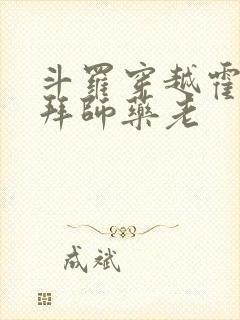 斗羅穿越霍
拜師藥老
成斌